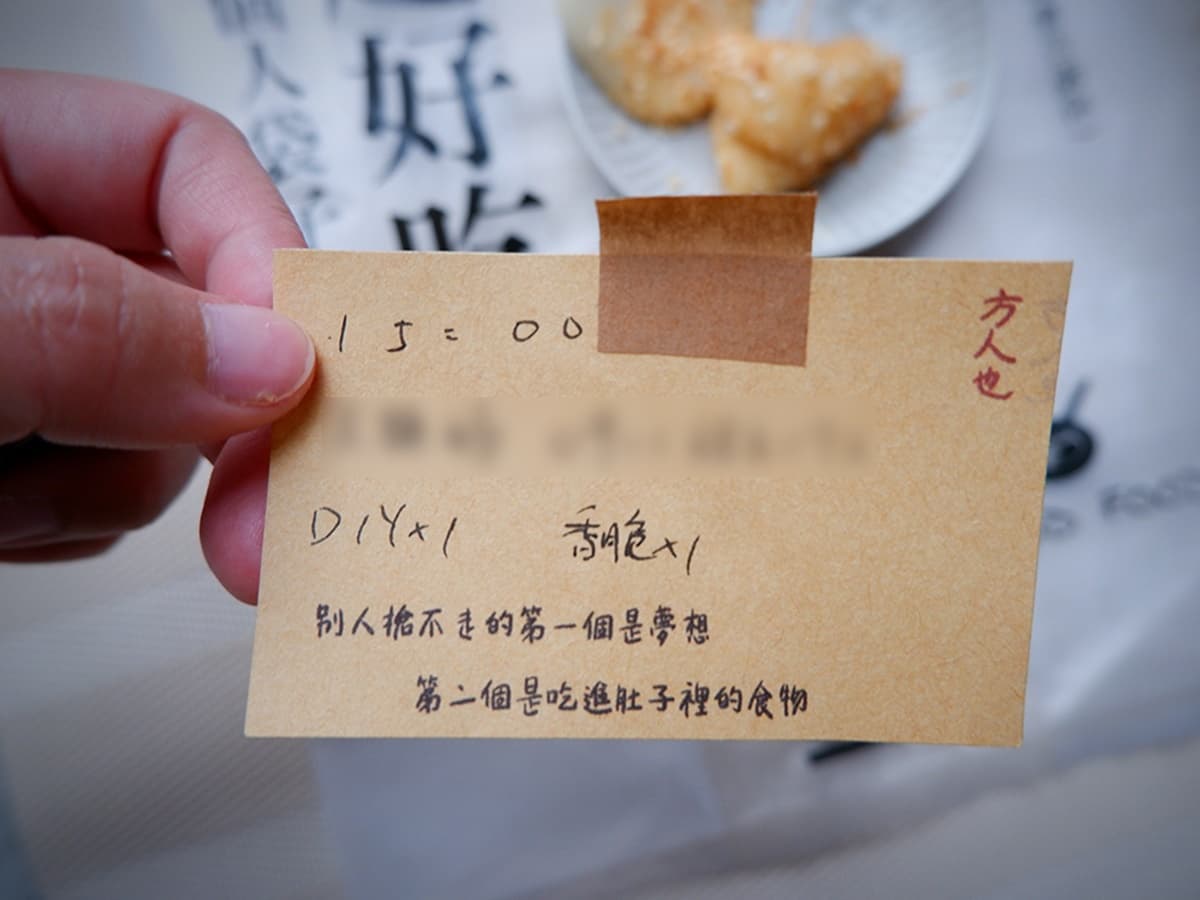 個人袋子
好吃
15=00
方人也
DIYx1 香脆x1
別人搶不走的第一個是夢想
第二個是吃進肚子裡的食物